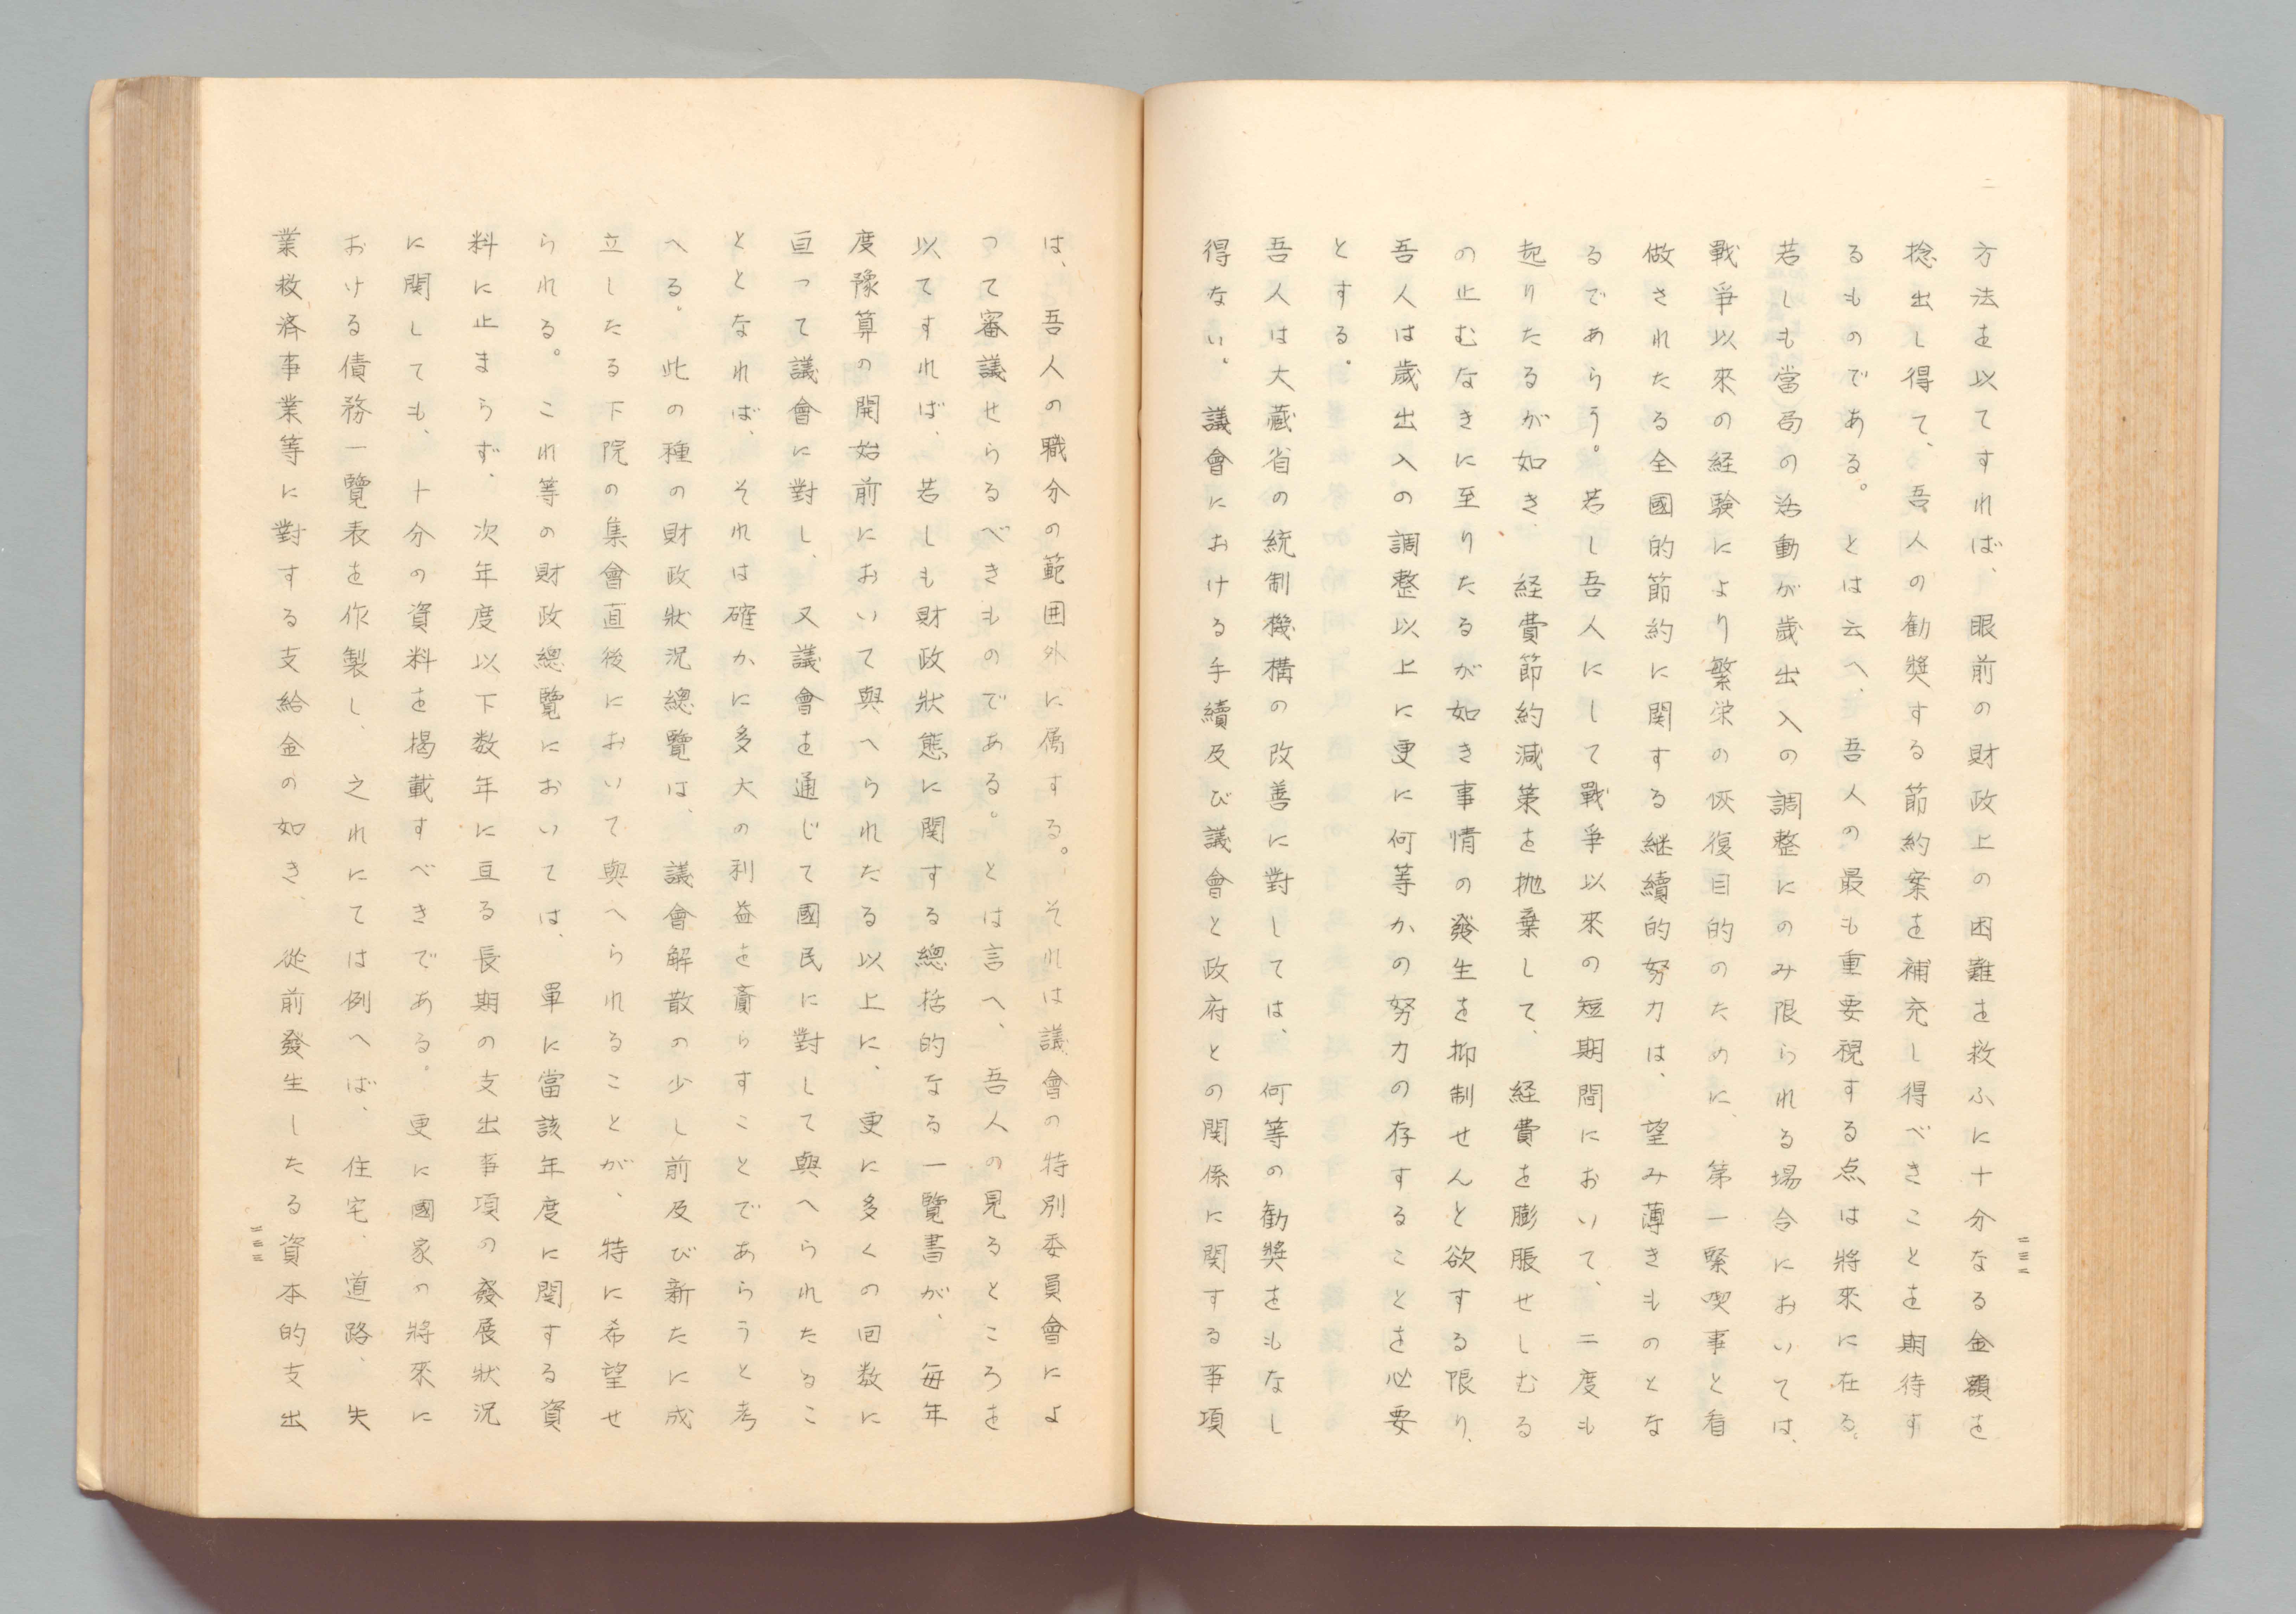 方法を以てすれば、眼前の財政上の困難を救ふに十分なる金額を
捻出し得て、吾人の勧奨する節約案を補充し得べきことを期待す
るものである。とは云へ、吾人の最も重要視する点は將來に在る。
若しも當局の活動が歳出入の調整にのみ限られる場合においては、
戰爭以來の経験により繁栄の恢復目的のために、第一緊喫事と看
做されたる全國的節約に関する継續的努力は、望み薄きものとな
るであらう。若し吾人にして戰爭以來の短期間において、二度も
起りたるが如き、経費節約減策を抛棄して、経費を膨脹せしむる
の止むなきに至りたるが如き事情の発生を抑制せんと欲する限り、
吾人は歳出入の調整以上に更に何等かの努力の存することを必要
とする。
吾人は大蔵省の統制機構の改善に對しては、何等の勧奨をもなし
得ない。議會における手續及び議會と政府との関係に関する事項
三三三
は、吾人の職分の範囲外に属する。それは議會の特別委員會によ
つて審議せらるべきものである。とは言へ、吾人の見るところを
以てすれば、若しも財政狀態に関する總括的なる一覽書が、毎年
度豫算の開始前において與へられたる以上に、更に多くの回数に
亘つて議會に對し、又議會を通じて國民に對して與へられたるこ
ととなれば、それは確かに多大の利益を齎らすことであらうと考
へる。此の種の財政狀況總覽は、議會解散の少し前及び新たに成
立したる下院の集會直後において與へられることが、特に希望せ
られる。これ等の財政總覽においては、單に當該年度に関する資
料に止まらず、次年度以下数年に亘る長期の支出事項の發展狀況
に関しても、十分の資料を掲載すべきである。更に國家の將來に
おける債務一覽表を作製し、之れにては例へば、住宅、道路、失
業救済事業等に對する支給金の如き、從前發生したる資本的支出
三三三